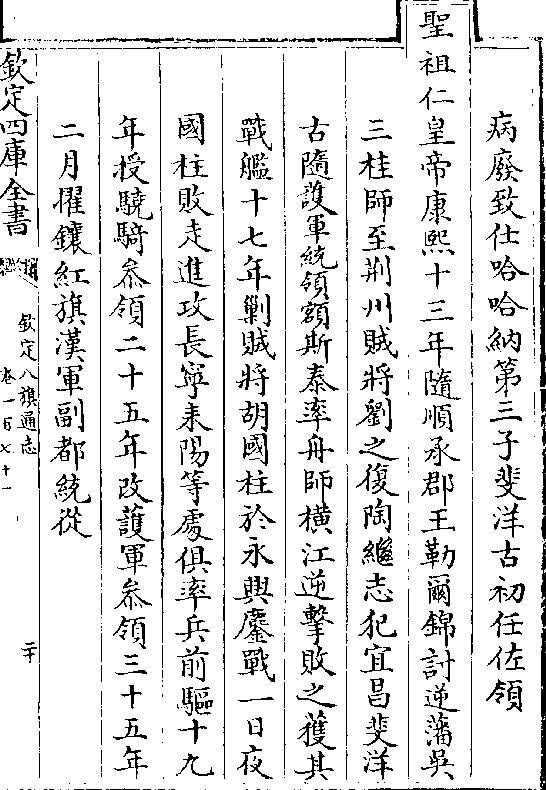 病廢致仕哈哈納第三子斐洋古初任佐領
聖祖仁皇帝康熙十三年隨順承郡王勒爾錦討逆藩吳
三桂師至荆州賊將劉之復陶繼志犯宜昌斐洋
古隨護軍統領額斯泰率舟師橫江逆擊敗之獲其
戰艦十七年剿賊將胡國柱於永興鏖戰一日夜
國柱敗走進攻長寧耒陽等處俱率兵前驅十九
年授驍騎叅領二十五年改護軍叅領三十五年
二月擢鑲紅旗漢軍副都統從
欽定四庫全書
欽定八旗通志
卷一百七十一
二十